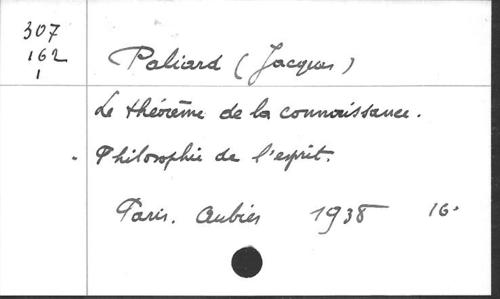 307
162
1
Paliard (Jacques)
Le théorème de la connaissance.
Philosophie de l'esprit.
Paris. Aubier 1938 16°